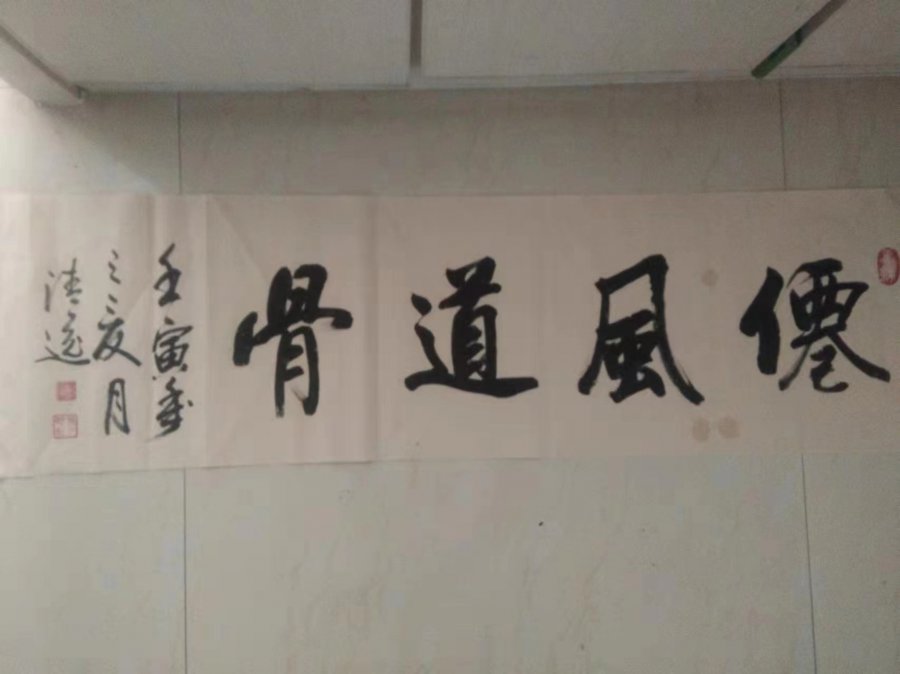 僊風道骨
壬寅年
之夏月
清逸